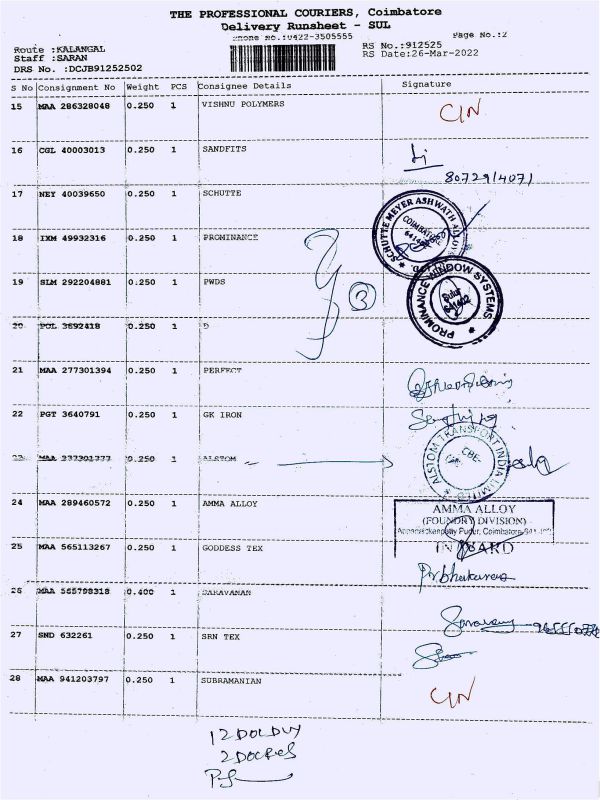 THE PROFESSIONAL COURIERS, Coimbatore
Delivery Runsheet - SUL
Phone No.:0422-3505555
Page No.:2
Route :KALANGAL
RS No.:912525
Staff :SARAN
RS Date:26-Mar-2022
DRS No. :DCJB91252502
S No Consignment No Weight PCS Consignee Details Signature
15 MAA 286328048 0.250 1 VISHNU POLYMERS
C/N
16 CGL 40003013 0.250 1 SANDFITS
8072914071
17 NEY 40039650 0.250 1 SCHUTTE
SCHUTTE MEYER ASHWATH ALLOYS
COIMBATORE
18 IXM 49932316 0.250 1 PROMINANCE
19 SLM 292204881 0.250 1 PWDS
3
PROMINANCE WINDOW SYSTEMS
Sulur
641402
20 POL 3692418 0.250 1 D
21 MAA 277301394 0.250 1 PERFECT
22 PGT 3640791 0.250 1 GK IRON
23 MAA 277301777 0.250 1 ALSTOM
ALSTOM TRANSPORT INDIA LIMITED
CBE-
24 MAA 289460572 0.250 1 AMMA ALLOY
AMMA ALLOY
(FOUNDRY DIVISION)
Coimbatore
INWARD
25 MAA 565113267 0.250 1 GODDESS TEX
Prbhakaran
26 MAA 565798318 0.400 1 SARAVANAN
Saravanan
27 SND 632261 0.250 1 SRN TEX
28 MAA 941203797 0.250 1 SUBRAMANIAN
C/N
12 DOLDUY
2 DOCRES